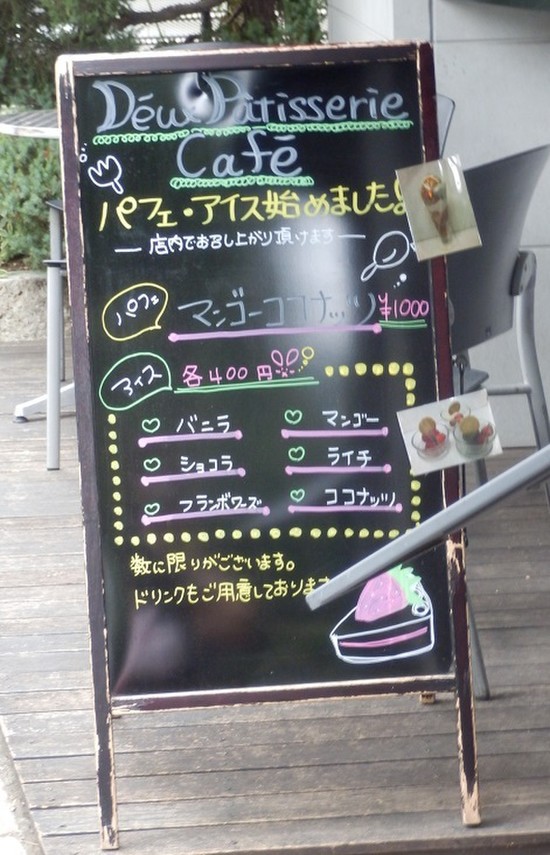 Déux Pâtisserie
Café
パフェ・アイス始めました!
― 店内でお召し上がり頂けます ―
パフェ マンゴーココナッツ ¥1000
アイス 各400円
バニラ マンゴー
ショコラ ライチ
フランボワーズ ココナッツ
数に限りがございます。
ドリンクもご用意しております